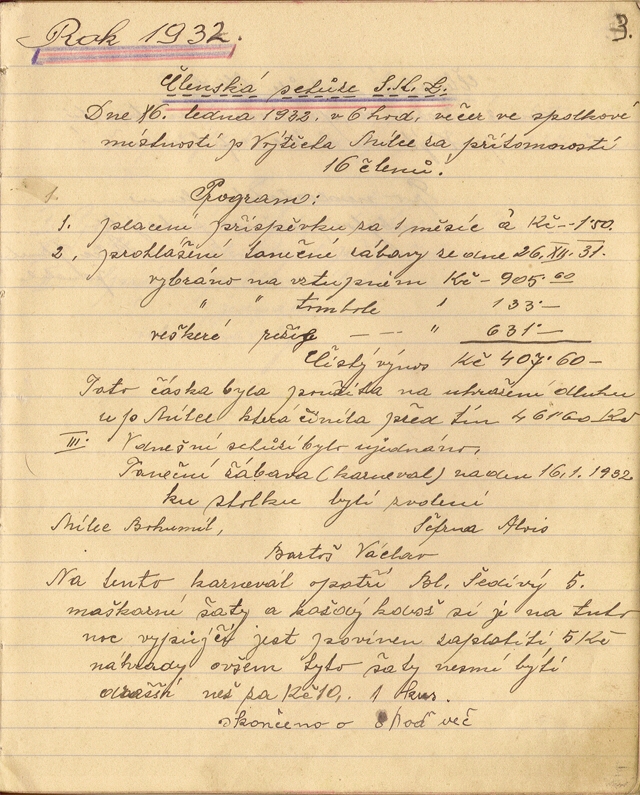 Rok 1932.
3.
Členská schůze S.K.L.
Dne 6. ledna 1932. v 6 hod. večer ve spolkové
místností p Vojtěcha Milce za přítomností
16 členů.
1. Program:
1. placení příspěvku za 1 měsíc á Kč -- 1·50.
2, prohlášení tanečné zábavy ze dne 26. XII. 31.
vybráno na vstupném Kč - 905·60
" " tombole " 133·—
veškeré režie — - - " 631·—
Čistý výnos Kč 407·60 -
Tato částka byla použita na uhražení dluhu
u p Milce která činila před tím 461·60 Kč
III. V dnešní schůzi bylo ujednáno,
Taneční zábava (karneval) na den 16.1.1932
ku stolku byli zvoleni
Milec Bohumil, Alois
Bartoš Václav
Na tento karnevál opatří Bl. Šedivý 5.
maškarné šaty a každý kdož si je na tuto
noc vypujčí jest povinen zaplatiti 5 Kč
náhrady ovšem tyto šaty nesmí býti
dražší než za Kč 10, 1 kus.
skončeno o 8 hod več